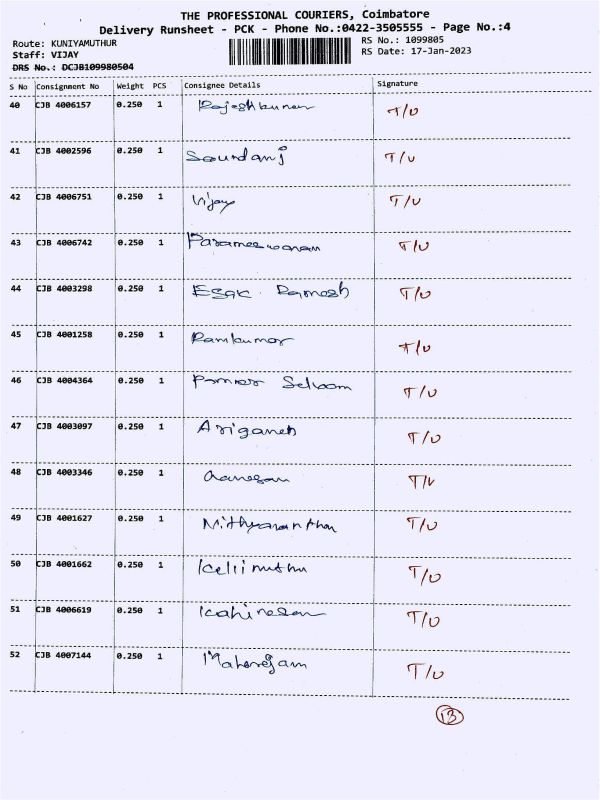 THE PROFESSIONAL COURIERS, Coimbatore
Delivery Runsheet - PCK - Phone No.:0422-3505555 - Page No.:4
Route: KUNIYAMUTHUR RS No.: 1099805
Staff: VIJAY RS Date: 17-Jan-2023
DRS No.: DCJB109980504
S No Consignment No Weight PCS Consignee Details Signature
40 CJB 4006157 0.250 1 Rajeshkumar T/U
41 CJB 4002596 0.250 1 T/U
42 CJB 4006751 0.250 1 Vijay T/U
43 CJB 4006742 0.250 1 Parameswaram T/U
44 CJB 4003298 0.250 1 Ramesh T/U
45 CJB 4001258 0.250 1 Ramkumar T/U
46 CJB 4004364 0.250 1 T/U
47 CJB 4003097 0.250 1 Ariganesh T/U
48 CJB 4003346 0.250 1 T/U
49 CJB 4001627 0.250 1 T/U
50 CJB 4001662 0.250 1 T/U
51 CJB 4006619 0.250 1 T/U
52 CJB 4007144 0.250 1 T/U
13